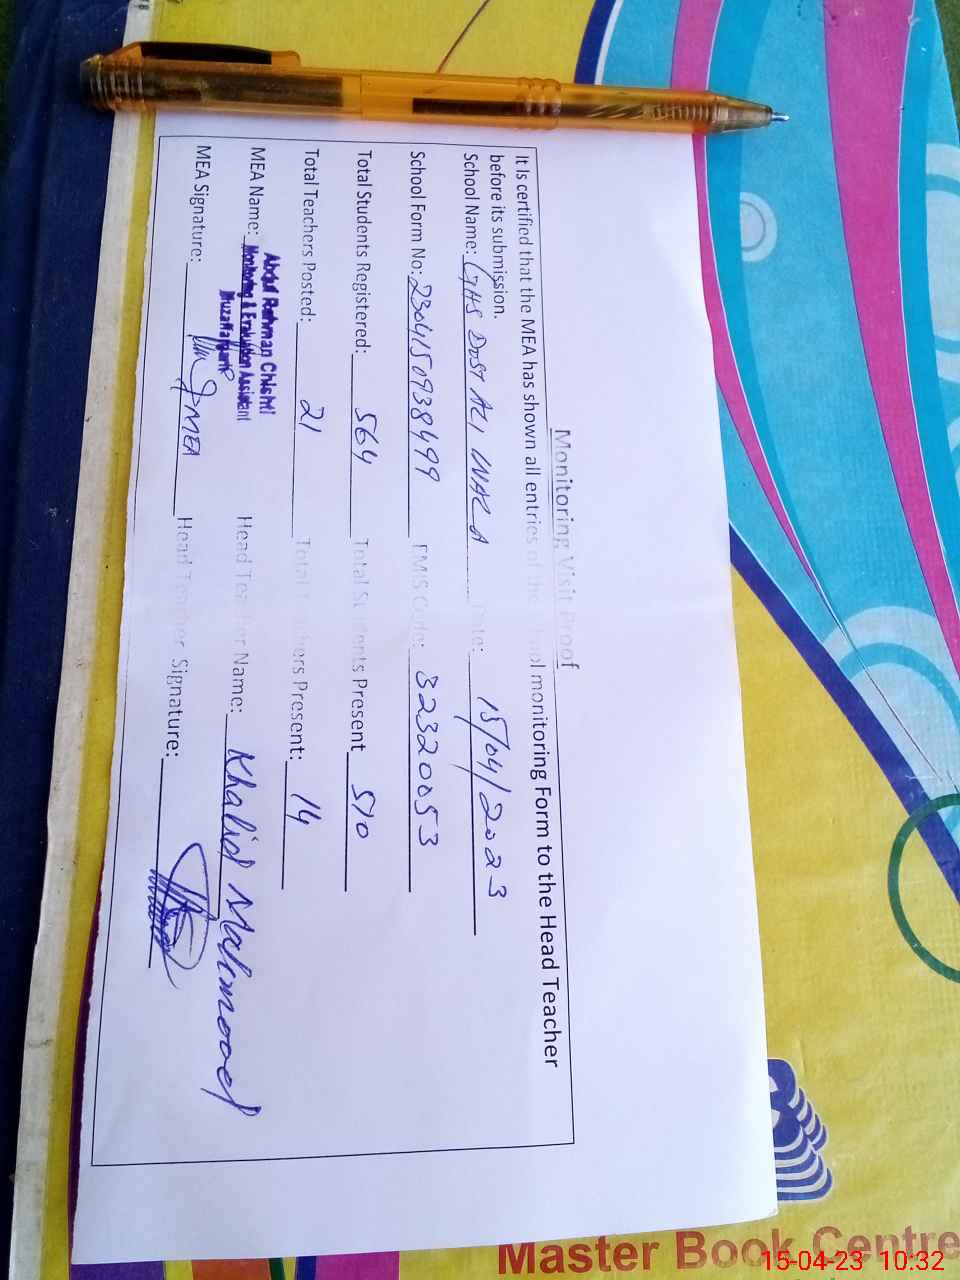 Monitoring Visit Proof
It Is certified that the MEA has shown all entries of the School monitoring Form to the Head Teacher
before its submission.
School Name: GHS DOST ALI WALA Date: 15/04/2023
School Form No: 2304150938499 EMIS Code: 32320053
Total Students Registered: 564 Total Students Present 510
Total Teachers Posted: 21 Total Teachers Present: 14
MEA Name: Abdul Rehman Chishti
Monitoring & Evaluation Assistant
Muzaffargarh
Head Teacher Name: Khalid Mahmood
MEA Signature: MEA Head Teacher Signature:
Master Book Centre
15-04-23 10:32